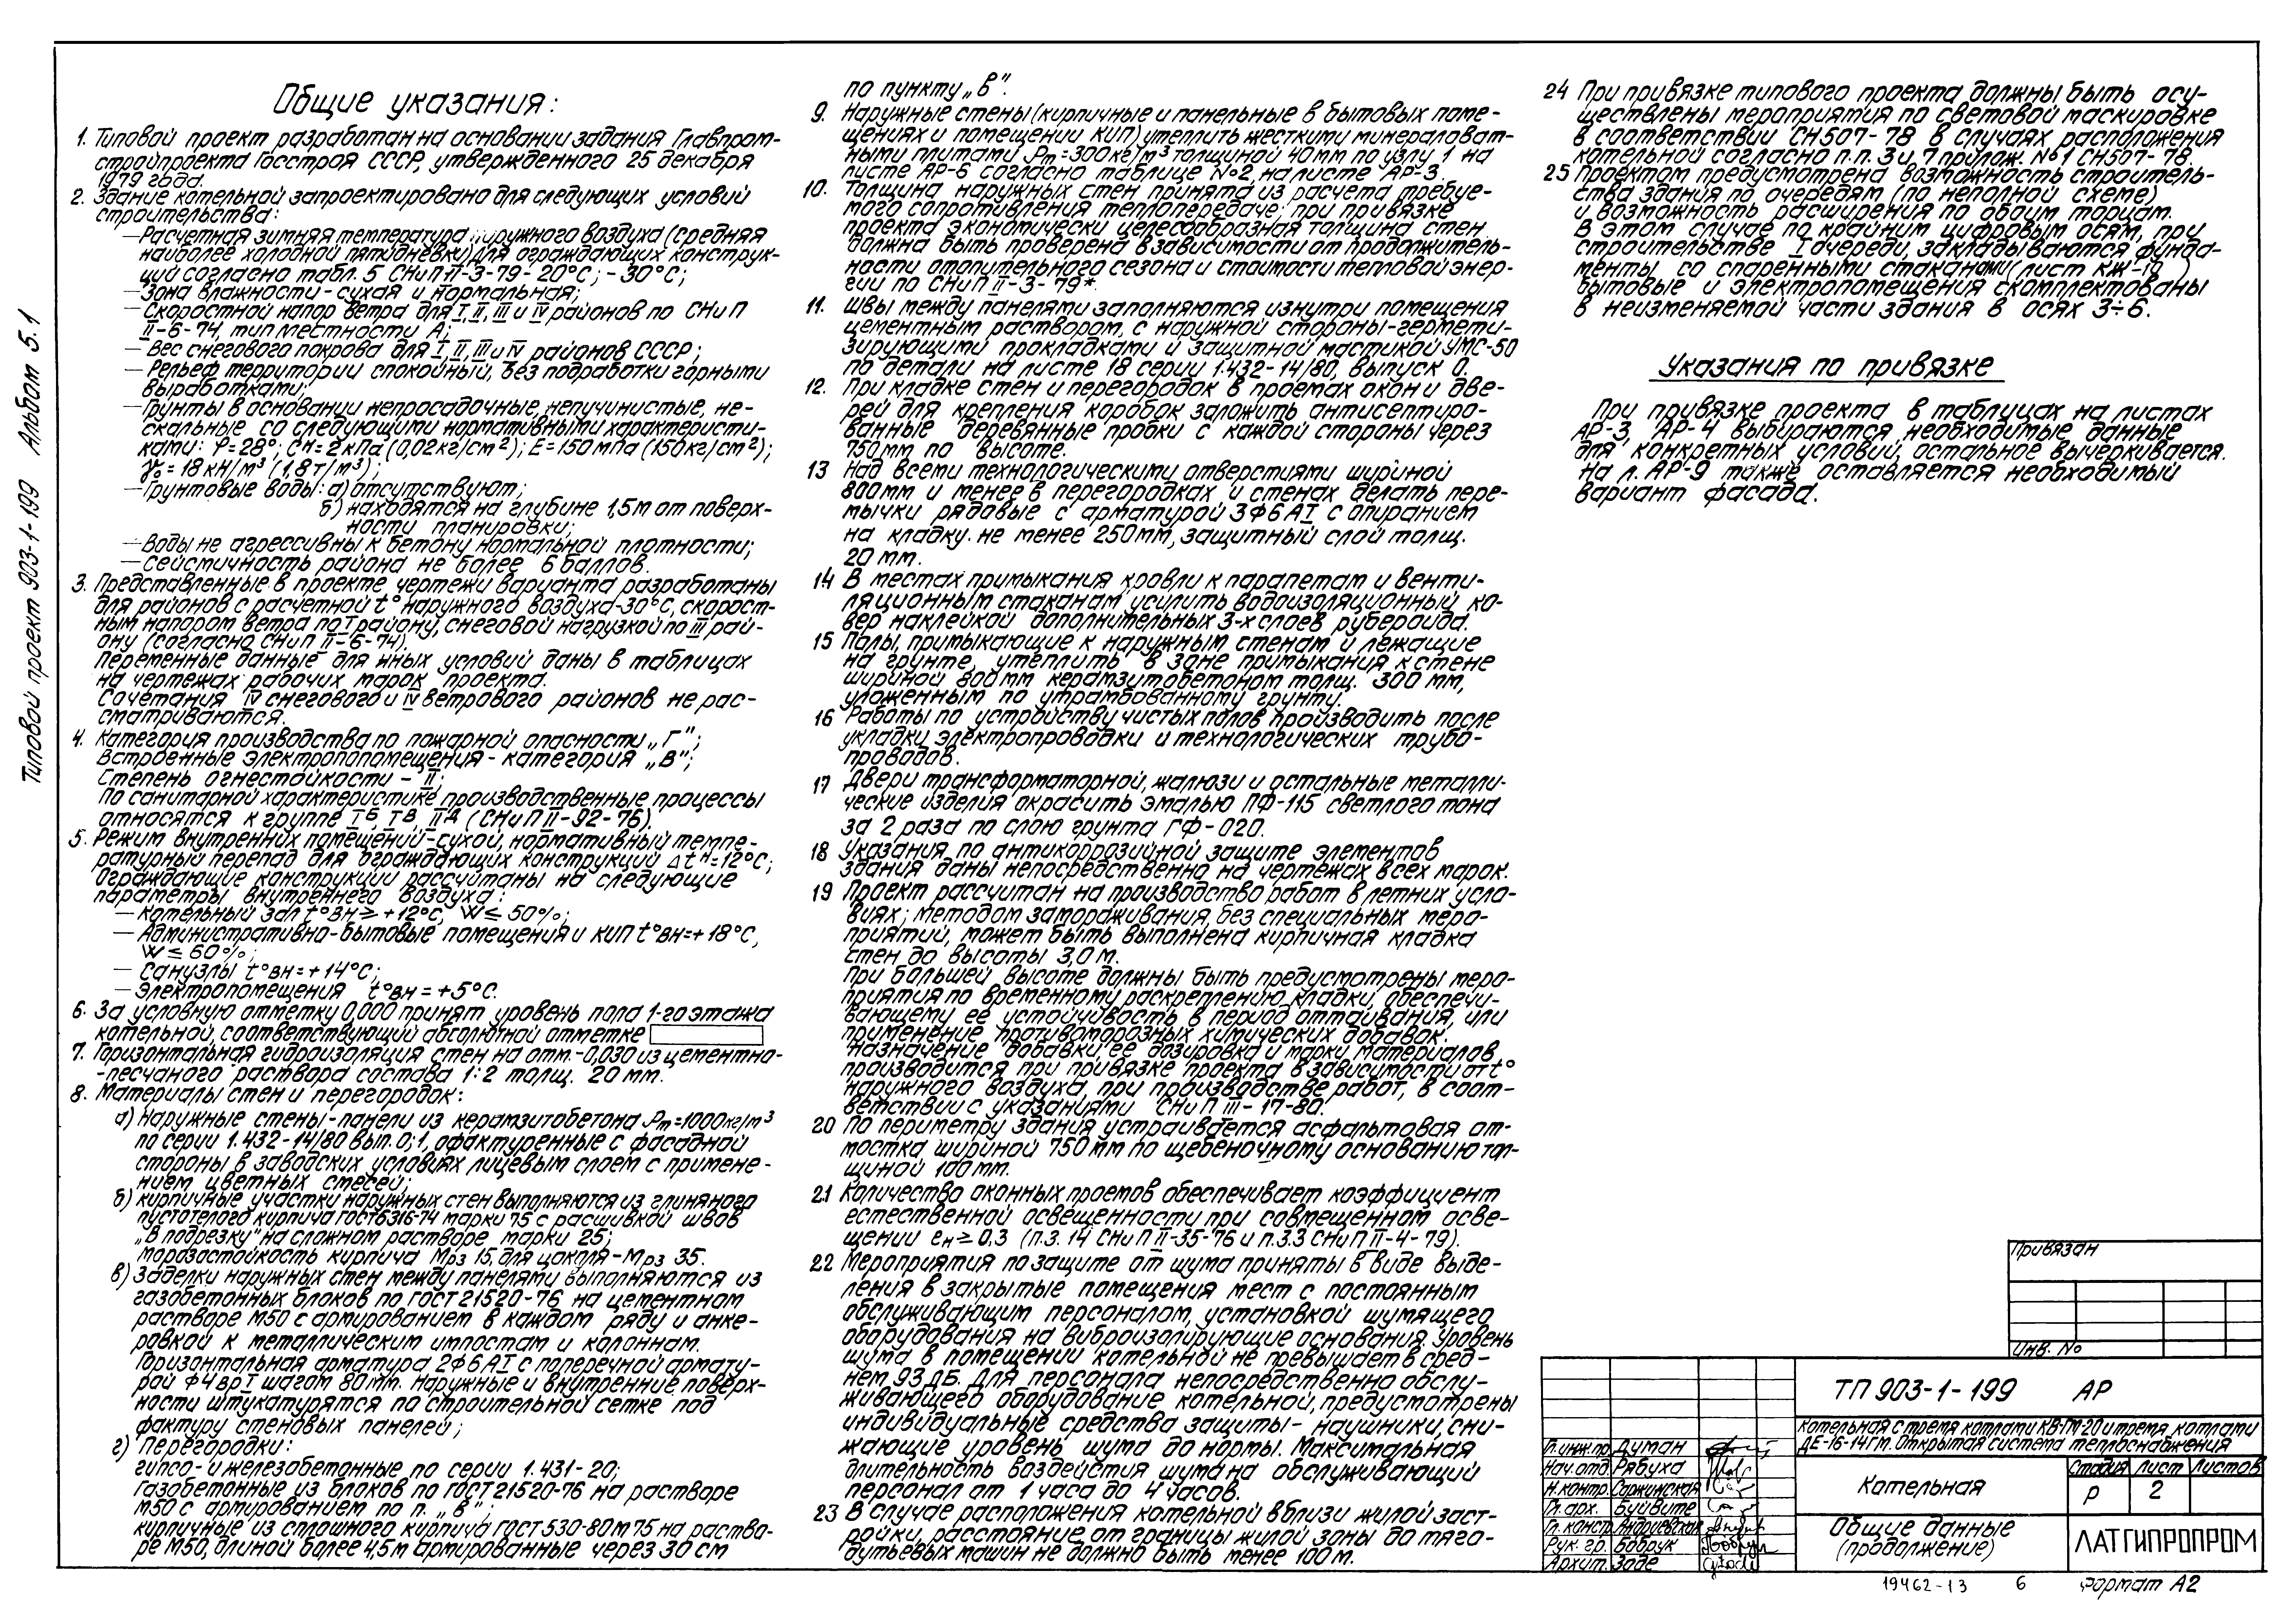 Типовой проект 903-1-199 Альбом 5.1
Общие указания:
1. Типовой проект разработан на основании задания Главпром-
стройпроекта Госстроя СССР, утвержденного 25 декабря
1979 года.
2. Здание котельной запроектировано для следующих условий
строительства:
— Расчетная зимняя температура наружного воздуха (средняя
наиболее холодной пятидневки) для ограждающих конструк-
ций согласно табл. 5 СНиП II-3-79 - 20°С; - 30°С;
— Зона влажности - сухая и нормальная;
— Скоростной напор ветра для I, II, III и IV районов по СНиП
II-6-74, тип местности А;
— Вес снегового покрова для I, II, III и IV районов СССР;
— Рельеф территории спокойный, без подработки горными
выработками;
— Грунты в основании непросадочные, непучинистые, не-
скальные со следующими нормативными характеристи-
ками: φ=28°; Cн=2кПа (0,02кг/см²); Е=150мпа (150кг/см²);
γо=18кН/м³ (1,8т/м³);
— Грунтовые воды: а) отсутствуют;
б) находятся на глубине 1,5м от поверх-
ности планировки;
— Воды не агрессивны к бетону нормальной плотности;
— Сейсмичность района не более 6 баллов.
3. Представленные в проекте чертежи варианта разработаны
для районов с расчетной t° наружного воздуха -30°С, скорост-
ным напором ветра по I району, снеговой нагрузкой по III рай-
ону (согласно СНиП II-6-74).
Переменные данные для иных условий даны в таблицах
на чертежах рабочих марок проекта.
Сочетания IV снегового и IV ветрового районов не рас-
сматриваются.
4. Категория производства по пожарной опасности „Г";
Встроенные электропопомещения - категория „В";
Степень огнестойкости - II;
По санитарной характеристике производственные процессы
относятся к группе Iб, Iв, IIд (СНиП II-92-76).
5. Режим внутренних помещений - сухой, нормативный темпе-
ратурный перепад для ограждающих конструкций Δtн=12°С;
Ограждающие конструкции рассчитаны на следующие
параметры внутреннего воздуха:
— Котельный зал t°вн ≥ +12°С, W ≤ 50%;
— Административно-бытовые помещения и КИП t°вн=+18°С,
W ≤ 60%;
— Санузлы t°вн=+14°С;
— Электропомещения t°вн=+5°С.
6. За условную отметку 0,000 принят уровень пола 1-го этажа
котельной, соответствующий абсолютной отметке
7. Горизонтальная гидроизоляция стен на отм.-0,030 из цементно-
-песчаного раствора состава 1:2 толщ. 20мм.
8. Материалы стен и перегородок:
а) Наружные стены - панели из керамзитобетона ρm=1000кг/м³
по серии 1.432-14/80 вып. 0; 1, офактуренные с фасадной
стороны в заводских условиях лицевым слоем с примене-
нием цветных смесей;
б) кирпичные участки наружных стен выполняются из глиняного
пустотелого кирпича ГОСТ 6316-74 марки 75 с расшивкой швов
„В подрезку" на сложном растворе марки 25;
морозостойкость кирпича Мрз 15, для цоколя - Мрз 35.
в) Заделки наружных стен между панелями выполняются из
газобетонных блоков по ГОСТ 21520-76 на цементном
растворе М50 с армированием в каждом ряду и анке-
ровкой к металлическим импостам и колоннам.
Горизонтальная арматура 2ф6АI с поперечной армату-
рой ф4врI шагом 80мм. Наружные и внутренние поверх-
ности штукатурятся по строительной сетке под
фактуру стеновых панелей;
г) Перегородки:
гипсо- и железобетонные по серии 1.431-20;
Газобетонные из блоков по ГОСТ 21520-76 на растворе
М50 с армированием по п. „в";
кирпичные из сплошного кирпича ГОСТ 530-80 М75 на раство-
ре М50, длиной более 4,5м армированные через 30см
по пункту „в".
9. Наружные стены (кирпичные и панельные в бытовых поме-
щениях и помещении КИП) утеплить жесткими минераловат-
ными плитами ρm=300кг/м³ толщиной 40мм по узлу 1 на
листе АР-6 согласно таблице №2 на листе АР-3.
10. Толщина наружных стен принята из расчета требуе-
мого сопротивления теплопередаче; при привязке
проекта экономически целесообразная толщина стен
должна быть проверена в зависимости от продолжитель-
ности отопительного сезона и стоимости тепловой энер-
гии по СНиП II-3-79*.
11. Швы между панелями заполняются изнутри помещения
цементным раствором, с наружной стороны - гермети-
зирующими прокладками и защитной мастикой УМС-50
по детали на листе 18 серии 1.432-14/80, выпуск 0.
12. При кладке стен и перегородок в проемах окон и две-
рей для крепления коробок заложить антисептиро-
ванные деревянные пробки с каждой стороны через
750мм по высоте.
13 Над всеми технологическими отверстиями шириной
800мм и менее в перегородках и стенах делать пере-
мычки рядовые с арматурой 3ф6АI с опиранием
на кладку. не менее 250мм, защитный слой толщ.
20мм.
14 В местах примыкания кровли к парапетам и венти-
ляционным стаканам усилить водоизоляционный ко-
вер наклейкой дополнительных 3-х слоев рубероида.
15 Полы, примыкающие к наружным стенам и лежащие
на грунте, утеплить в зоне примыкания к стене
шириной 800мм керамзитобетоном толщ. 300мм,
уложенным по утрамбованному грунту.
16 Работы по устройству чистых полов производить после
укладки электропроводки и технологических трубо-
проводов.
17 Двери трансформаторной, жалюзи и остальные металли-
ческие изделия окрасить эмалью ПФ-115 светлого тона
за 2 раза по слою грунта ГФ-020.
18 Указания по антикоррозийной защите элементов
здания даны непосредственно на чертежах всех марок.
19 Проект рассчитан на производство работ в летних усло-
виях; методом замораживания, без специальных меро-
приятий, может быть выполнена кирпичная кладка
стен до высоты 3,0м.
При большей высоте должны быть предусмотрены меро-
приятия по временному раскреплению кладки, обеспечи-
вающему ее устойчивость в период оттаивания, или
применение противоморозных химических добавок.
Назначение добавки, ее дозировка и марки материалов
производится при привязке проекта в зависимости от t°
наружного воздуха, при производстве работ, в соот-
ветствии с указаниями СНиП III-17-80.
20 По периметру здания устраивается асфальтовая от-
мостка шириной 750мм по щебеночному основанию тол-
щиной 100мм.
21 Количество оконных проемов обеспечивает коэффициент
естественной освещенности при совмещенном осве-
щении ен ≥ 0.3 (п.3. 14 СНиП II-35-76 и п.3.3 СНиП II-4-79).
22 Мероприятия по защите от шума приняты в виде выде-
ления в закрытые помещения мест с постоянным
обслуживающим персоналом, установкой шумящего
оборудования на виброизолирующие основания. Уровень
шума в помещении котельной не превышает в сред-
нем 93дБ. Для персонала непосредственно обслу-
живающего оборудование котельной, предусмотрены
индивидуальные средства защиты - наушники, сни-
жающие уровень шума до нормы. Максимальная
длительность воздействия шума на обслуживающий
персонал от 1 часа до 4 часов.
23 В случае расположения котельной вблизи жилой заст-
ройки, расстояние от границы жилой зоны до тяго-
дутьевых машин не должно быть менее 100м.
24 При привязке типового проекта должны быть осу-
ществлены мероприятия по световой маскировке
в соответствии СН507-78 в случаях расположения
котельной согласно п.п. 3 и, 7 прилож. №1 СН507-78.
25 Проектом предусмотрена возможность строитель-
ства здания по очередям (по неполной схеме)
и возможность расширения по обоим торцам.
В этом случае по крайним цифровым осям, при
строительстве I очереди, закладываются фунда-
менты со спаренными стаканами (лист КЖ-10)
бытовые и электропомещения скомплектованы
в неизменяемой части здания в осях 3÷6.
Указания по привязке
При привязке проекта в таблицах на листах
АР-3, АР-4 выбираются необходимые данные
для конкретных условий, остальное вычеркивается.
На л. АР-9 также оставляется необходимый
вариант фасада.
Привязан
Инв. №
ТП 903-1-199 АР
Котельная с тремя котлами КВ-ГМ-20 и тремя котлами
ДЕ-16-14ГМ. Открытая система теплоснабжения
Гл.инж.пр. Думан
Нач.отд. Рябуха
Н.контр. Саржинская
Гл.арх. Буйвите
Гл.констр. Андриевская
Рук. гр. Бобрук
Архит. Зоде
Котельная
Стадия Лист Листов
Р 2
Общие данные
(продолжение)
ЛАТГИПРОПРОМ
19462-13 6 Формат А2